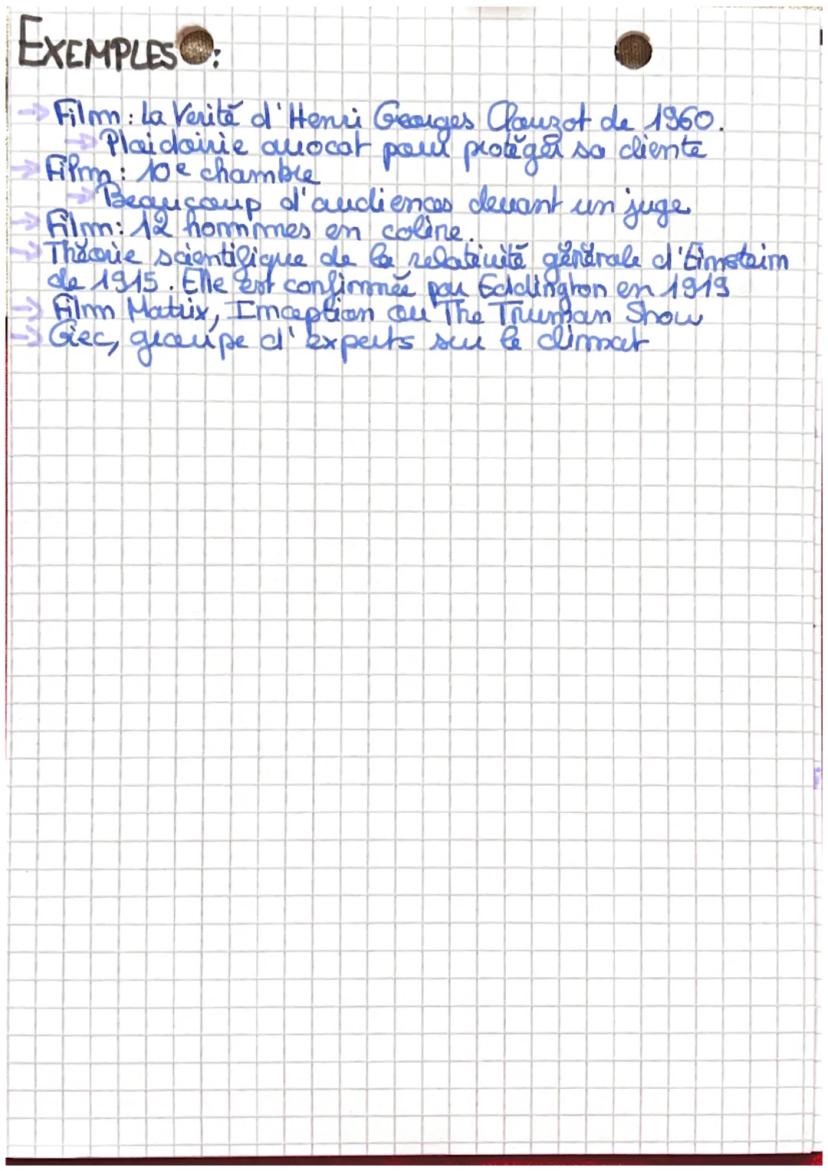 EXEMPLES :
→ Film : La Verité d'Henri Georges Clouzot de 1960.
→ Plaidoirie avocat pour protéger sa cliente
→ Film : 10e chambre
→ Beaucoup d'audiences devant un juge
→ Film : 12 hommes en colère.
→ Théorie scientifique de la relativité générale d'Einstein
de 1915. Elle est confirmée par Eddington en 1919
→ Film Matrix, Inception ou The Truman Show
→ Giec, groupe d'experts sur le climat